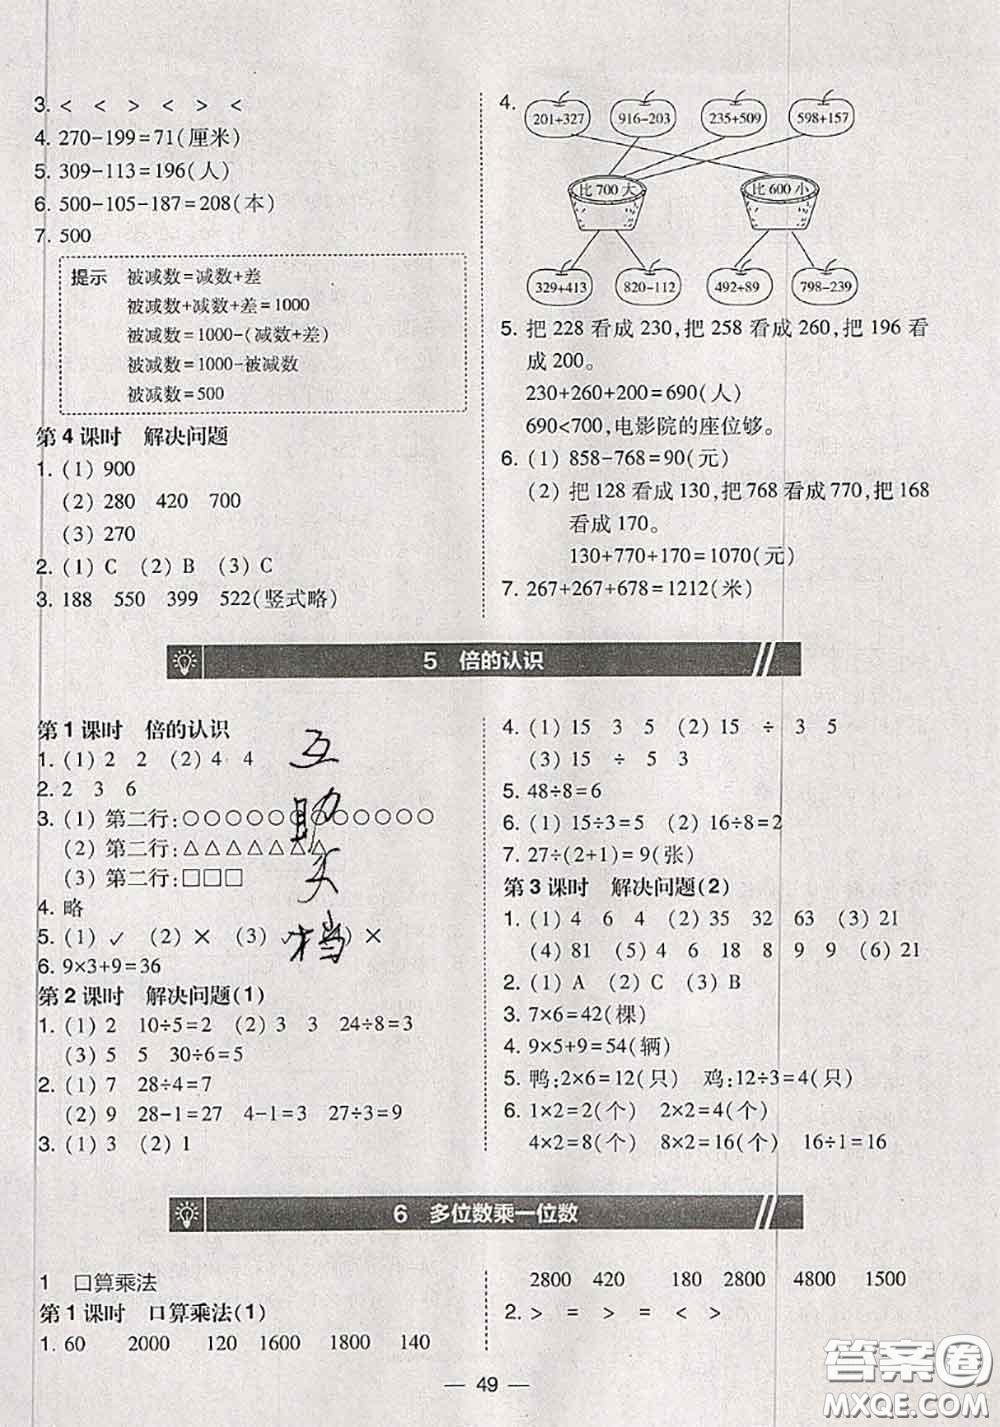 3. < < > < > <
4. 270-199=71(厘米)
5. 309-113=196(人)
6. 500-105-187=208(本)
7. 500
提示 被减数=减数+差
被减数+减数+差=1000
被减数=1000-(减数+差)
被减数=1000-被减数
被减数=500
第4课时 解决问题
1. (1) 900
(2) 280 420 700
(3) 270
2. (1) C (2) B (3) C
3. 188 550 399 522(竖式略)
4. 201+327 916-203 235+509 598+157
比700大 比600小
329+413 820-112 492+89 798-239
5. 把228看成230,把258看成260,把196看
成200。
230+260+200=690(人)
690<700,电影院的座位够。
6. (1) 858-768=90(元)
(2) 把128看成130,把768看成770,把168
看成170。
130+770+170=1070(元)
7. 267+267+678=1212(米)
5 倍的认识
第1课时 倍的认识
1. (1) 2 2 (2) 4 4
2. 2 3 6
3. (1) 第二行:○○○○○○○○○○○○
(2) 第二行:△△△△△△△
(3) 第二行:□□□
4. 略
5. (1) ✓ (2) × (3) ) ×
6. 9×3+9=36
互
助
文
档
第2课时 解决问题(1)
1. (1) 2 10÷5=2 (2) 3 3 24÷8=3
(3) 5 5 30÷6=5
2. (1) 7 28÷4=7
(2) 9 28-1=27 4-1=3 27÷3=9
3. (1) 3 (2) 1
4. (1) 15 3 5 (2) 15 ÷ 3 5
(3) 15 ÷ 5 3
5. 48÷8=6
6. (1) 15÷3=5 (2) 16÷8=2
7. 27÷(2+1)=9(张)
第3课时 解决问题(2)
1. (1) 4 6 4 (2) 35 32 63 (3) 21
(4) 81 (5) 4 6 18 8 9 9 (6) 21
2. (1) A (2) C (3) B
3. 7×6=42(棵)
4. 9×5+9=54(辆)
5. 鸭:2×6=12(只) 鸡:12÷3=4(只)
6. 1×2=2(个) 2×2=4(个)
4×2=8(个) 8×2=16(个) 16÷1=16
6 多位数乘一位数
1 口算乘法
第1课时 口算乘法(1)
1. 60 2000 120 1600 1800 140
2800 420 180 2800 4800 1500
2. > = > = < >
49
答案圈
MXQE.COM